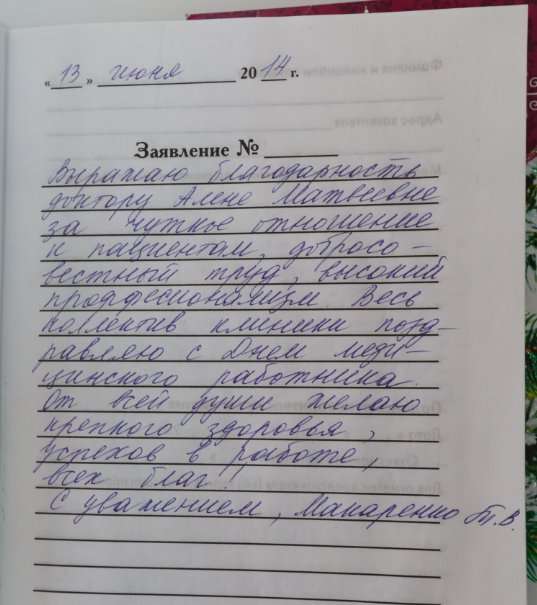 « 13 » июня 2014 г.
Заявление №
Выражаю благодарность
доктору Алене Матвеевне
за чуткое отношение
к пациентам, добросо-
вестный труд, высокий
проффесионализм. Весь
коллектив клиники позд-
равляю с Днем меди-
цинского работника.
От всей души желаю
крепкого здоровья,
успехов в работе,
всех благ!
С уважением, Макаренко Т.В.